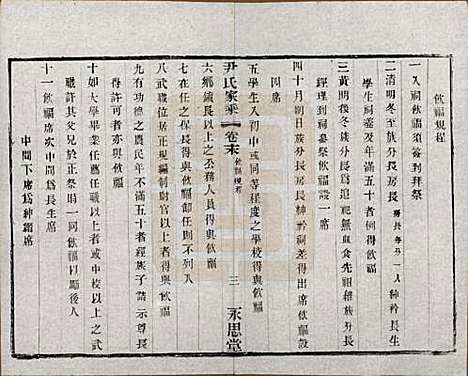 飲福規程
一入祠飲福須簽到拜祭
二清明冬至族分長房長房長每房一人紳衿長生
學生祠差及年滿五十者與飲福
三黃明後冬至前祭遠祀無與食先祖雜族分長
經理到祠叅祭飲福設一席
四十月朔日族分長房長紳衿祠差得出席飲福設
四席
尹氏家乘 卷末 飲福規程 三 永思堂
五學生入初中或同等程度之學校得與飲福
六鄉鎮長以上公務人員得與飲福
七在任分縣長得與飲福
八武職以正式現編制尉官以上者得與飲福
九有功德之農民年不滿五十者經族子請示尊長
得許可者亦與飲福
十如大學畢業任薦任職以上者或中校以上之武
職許其父兄於正祭時一同飲福後人
十一飲福席次中間長生席
中間下席爲紳錦席